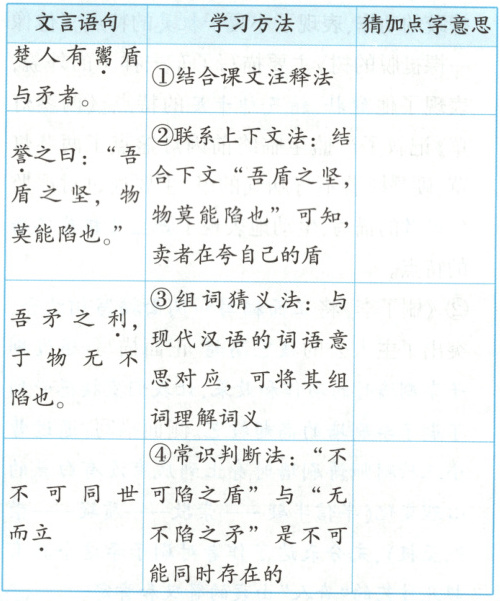 文言语句 学习方法 猜加点字意思
楚人有鬻盾
与矛者。
①结合课文注释法
誉之曰：“吾
盾之坚，物
莫能陷也。”
②联系上下文法：结
合下文“吾盾之坚，
物莫能陷也”可知，
卖者在夸自己的盾
吾矛之利，
于物无不
陷也。
③组词猜义法：与
现代汉语的词语意
思对应，可将其组
词理解词义
不可同世
而立
④常识判断法：“不
可陷之盾”与“无
不陷之矛”是不可
能同时存在的